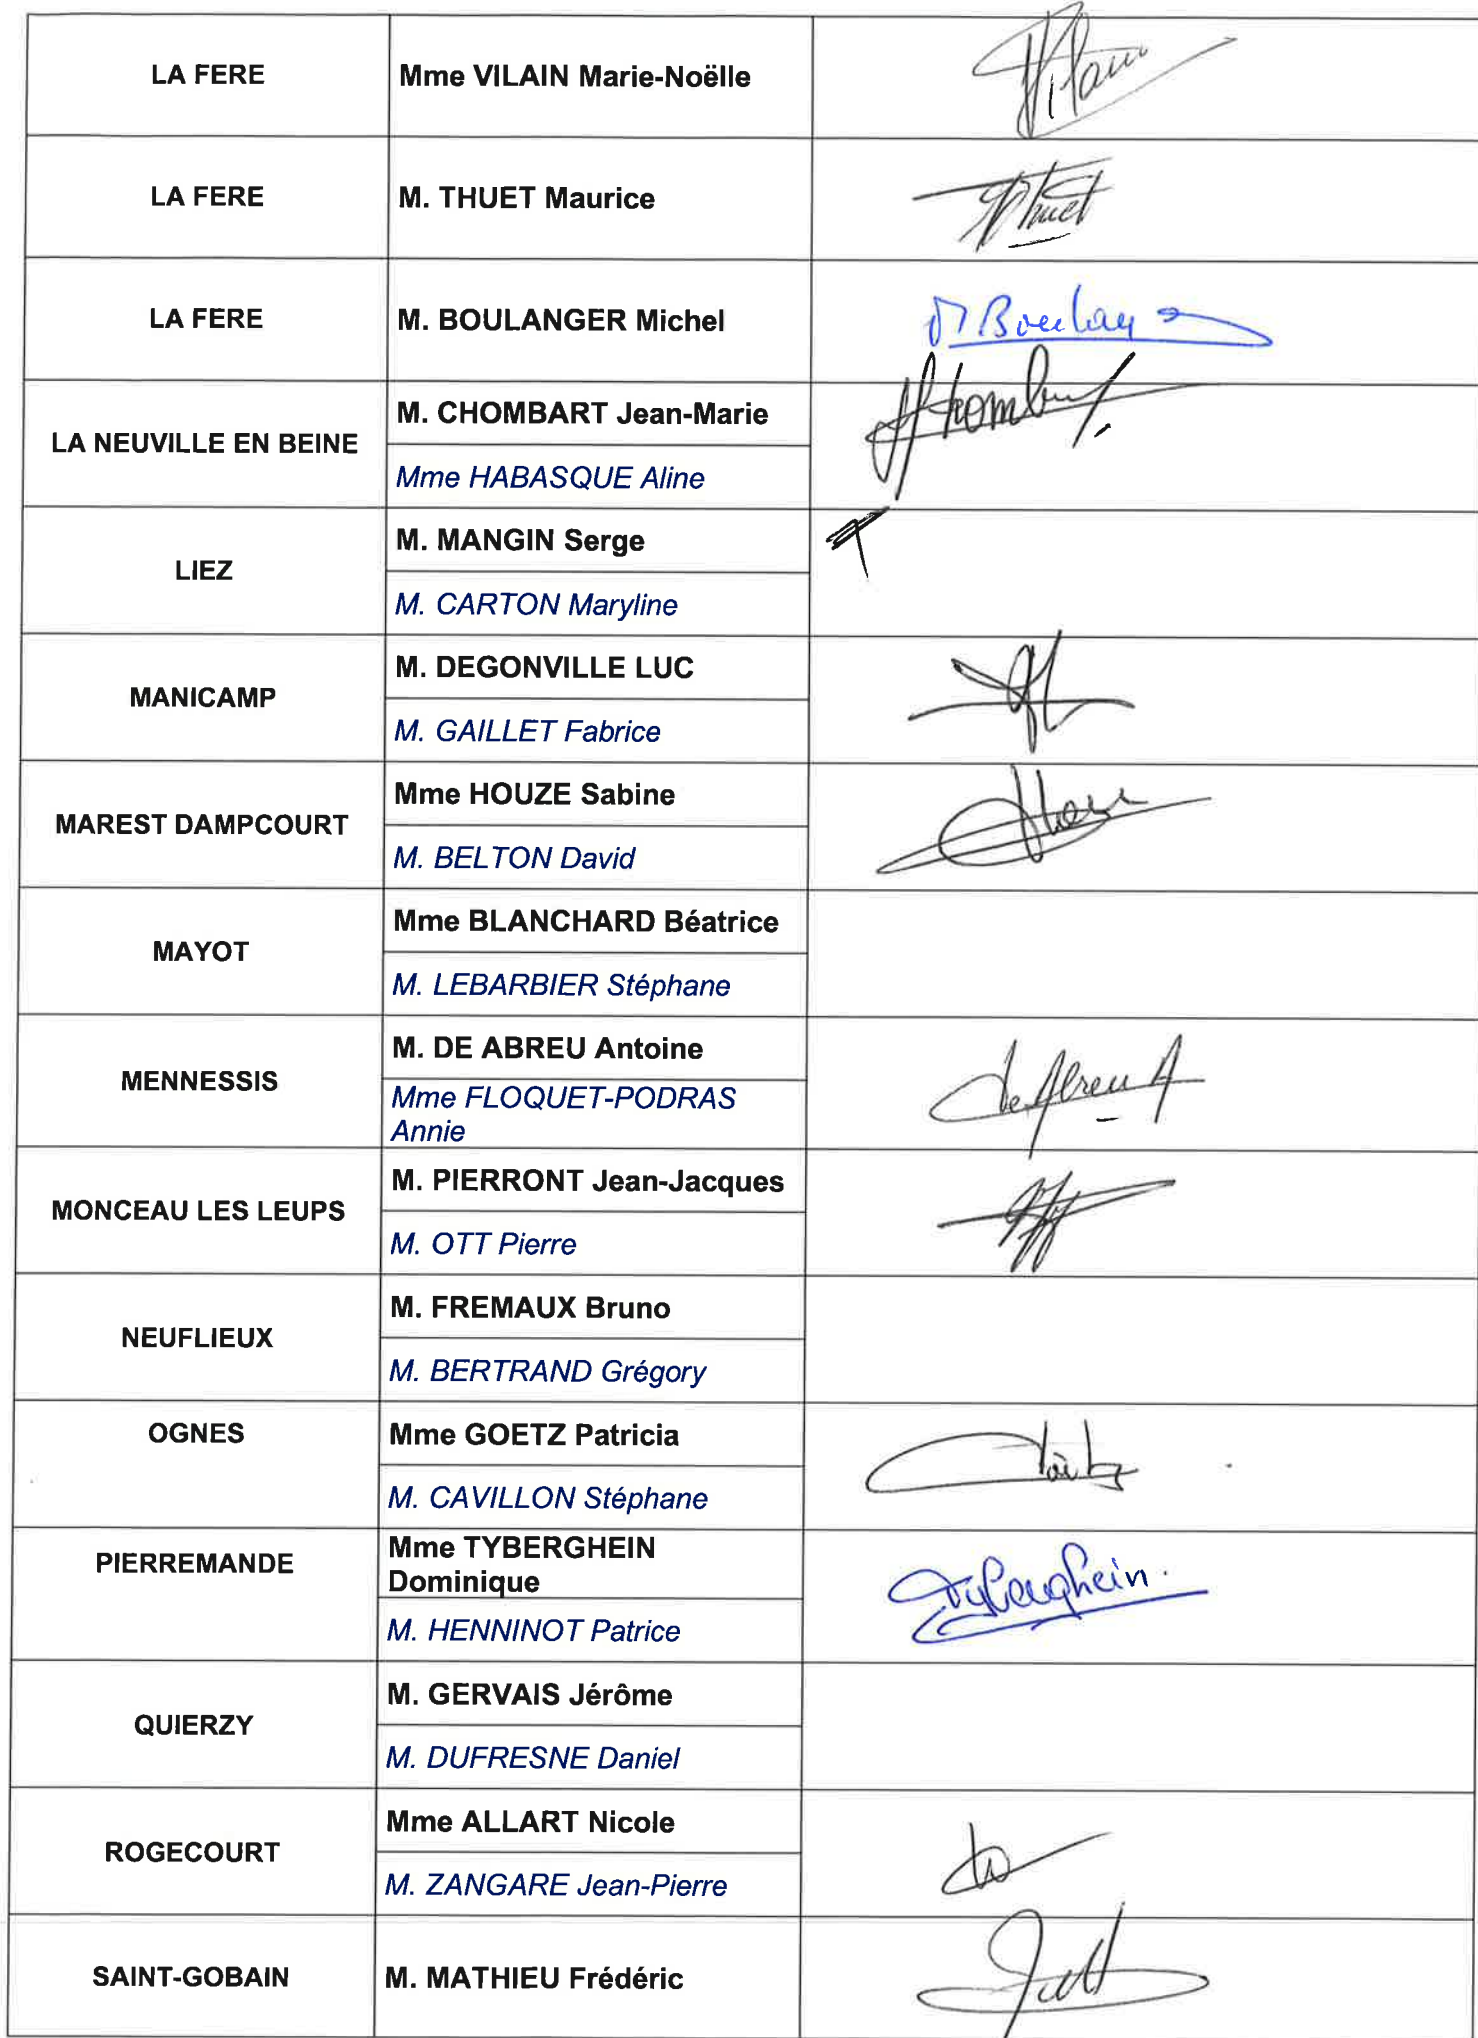 LA FERE
Mme VILAIN Marie-Noëlle
Vilain
LA FERE
M. THUET Maurice
Thuet
LA FERE
M. BOULANGER Michel
LA NEUVILLE EN BEINE
M. CHOMBART Jean-Marie
Mme HABASQUE Aline
LIEZ
M. MANGIN Serge
M. CARTON Maryline
MANICAMP
M. DEGONVILLE LUC
M. GAILLET Fabrice
MAREST DAMPCOURT
Mme HOUZE Sabine
M. BELTON David
MAYOT
Mme BLANCHARD Béatrice
M. LEBARBIER Stéphane
MENNESSIS
M. DE ABREU Antoine
De Abreu A
Mme FLOQUET-PODRAS
Annie
MONCEAU LES LEUPS
M. PIERRONT Jean-Jacques
M. OTT Pierre
NEUFLIEUX
M. FREMAUX Bruno
M. BERTRAND Grégory
OGNES
Mme GOETZ Patricia
M. CAVILLON Stéphane
PIERREMANDE
Mme TYBERGHEIN
Dominique
Tyberghein
M. HENNINOT Patrice
QUIERZY
M. GERVAIS Jérôme
M. DUFRESNE Daniel
ROGECOURT
Mme ALLART Nicole
M. ZANGARE Jean-Pierre
SAINT-GOBAIN
M. MATHIEU Frédéric